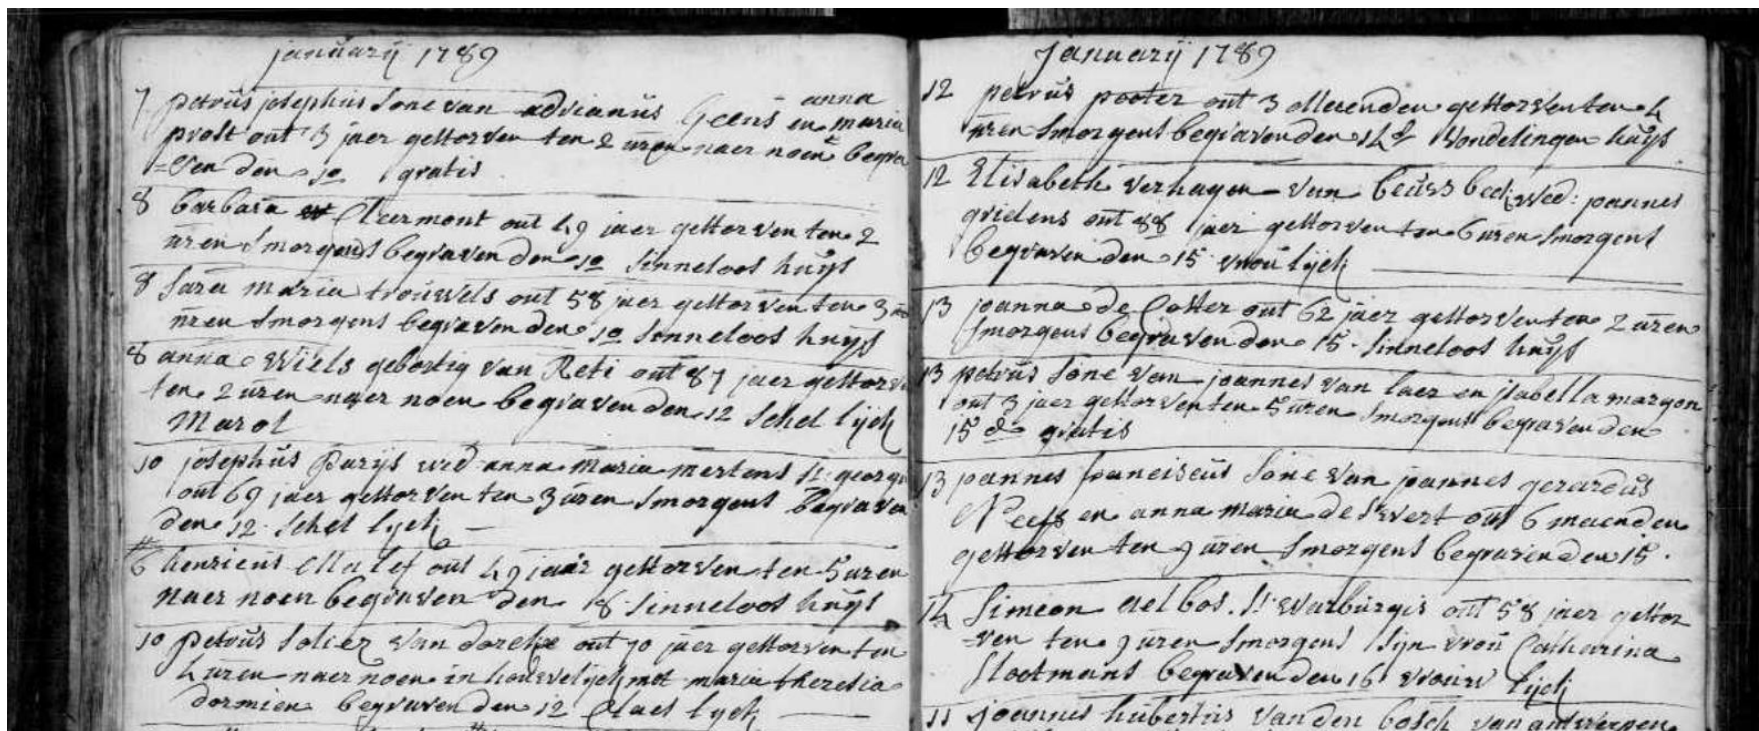 januarij 1789
anna
7 petrus josephus sone van adrianus Geens en maria
prost out 3 jaer gestorven ten 2 uren naer noen begra
=ven den 10 gratis
8 barbara Clermont out 49 jaer gestorven ten 2
uren smorgens begraven den 10 sinneloos huijs
8 sara maria trouwels out 58 jaer gestorven ten 3
uren smorgens begraven den 10 sinneloos huijs
8 anna Wiels gebortig van Reti out 87 jaer gestorv
ten 2 uren naer noen begraven den 12 schel lijck
Marol
10 josephus Parijs wed anna maria mertens St georg
out 69 jaer gestorven ten 3 uren smorgens begraven
den 12 schel lyck
16 henricus out 49 jaer gestorven ten 5 uren
naer noen begraven den 18 sinneloos huijs
10 petrus solier van out 70 jaer gestorven ten
4 uren naer noen in houwelijck met maria theresia
dormien begraven den 12 lyck
Januarij 1789
12 petrus pooter out 3 den gestorven ten 4
uren smorgens begraven den 14 Vondelingen huijs
12 Elisabeth verhagen van wed: joannes
grielens out 88 jaer gestorven ten 6 uren smorgens
begraven den 15 vrou lijck
13 joanna de Coster out 62 jaer gestorven ten 2 uren
smorgens begraven den 15 sinneloos huijs
13 petrus sone van joannes van laer en isabella margon
out 3 jaer gestorven ten 5 uren smorgens begraven den
15 gratis
13 joannes franciscus sone van joannes gerardus
Neefs en anna maria de out 6 maenden
gestorven ten 9 uren smorgens begraven den 15.
14 Simeon aelbos. St warburgis out 58 jaer gestor
=ven ten 9 uren smorgens sijn vrou Catharina
slootmans begraven den 16 vrouw lijck
11 joannes hubertus vanden bosch van antwerpen